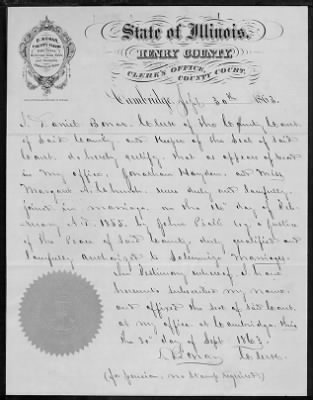 State of Illinois.
HENRY COUNTY
CLERK'S OFFICE,
COUNTY COURT.
Cambridge, Sept 30th 1863.
I, Daniel Bonar, Clerk of the County Court
of Said County and Keeper of the Seal of Said
Court, do hereby certify, that as appears of record
in my Office, Jonathan Hayden, and Miss
Margaret were duly and lawfully
joint in marriage, on the day of Feb-
ruary A.D. 1855. by John Esq a Justice
of the Peace of Said County duly qualified and
lawfully authorized to Solemnize Marriages.
In Testimony whereof I have
hereunto subscribed my name
and affixed the seal of Said Court,
at my office at Cambridge, this
the 30th day of Sept 1863.
D. Bonar Clerk.
(for pension, no Stamp required)